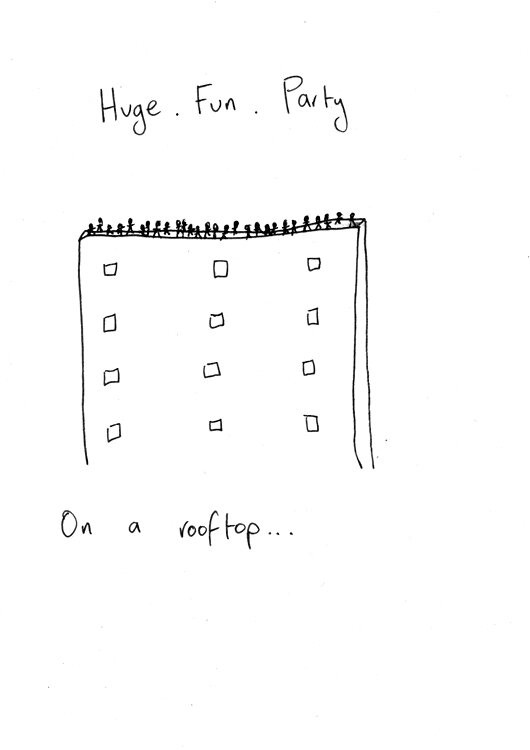 Huge . Fun . Party
On a rooftop...